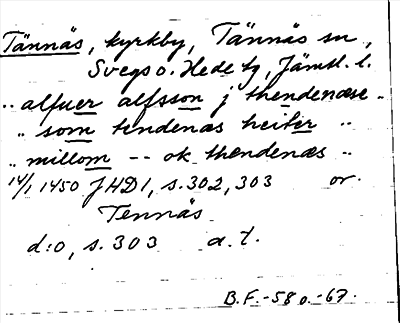 Tännäs, kyrkby, Tännäs sn,
Svegs o. Hede tg, Jämtl. l.
.. alfuer alfsson j thendenæse ..
.. som tendenas heiter ..
.. millom -- ok thendenæs ..
14/1 1450 JHD1, s. 302, 303 or.
Tennäs
d:o, s. 303 a.t.
B.F.-58 o.-67.